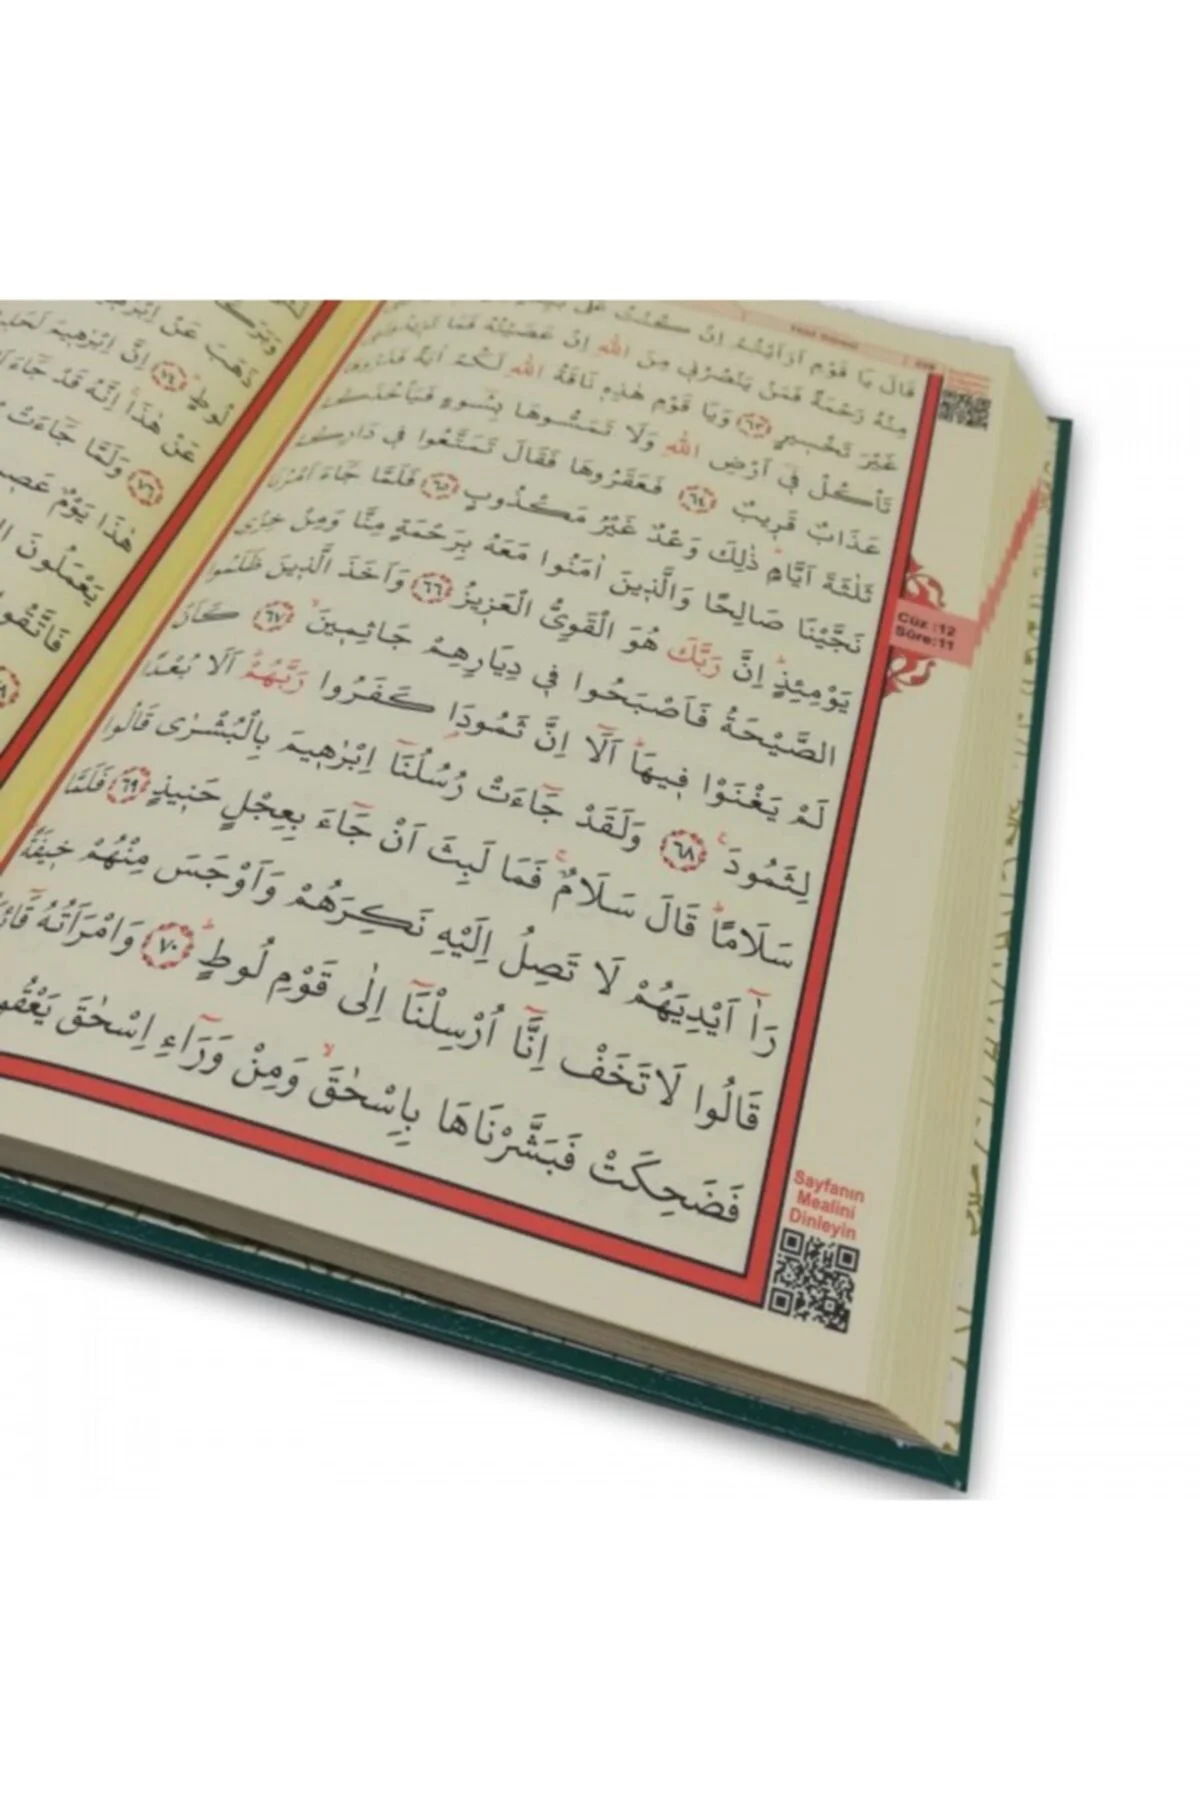 قَالَ يَا قَوْمِ اَرَاَيْتُمْ اِنْ كُنْتُ عَلٰى
مِنْهُ رَحْمَةً فَمَنْ يَنْصُرُن۪ي مِنَ اللّٰهِ اِنْ عَصَيْتُهُ فَمَا تَز۪يدُونَن۪ي
غَيْرَ تَخْس۪يرٍ ٦٣ وَيَا قَوْمِ هٰذِه۪ نَاقَةُ اللّٰهِ لَكُمْ اٰيَةً فَذَرُوهَا
تَأْكُلْ ف۪ٓي اَرْضِ اللّٰهِ وَلَا تَمَسُّوهَا بِسُٓوءٍ فَيَأْخُذَكُمْ
عَذَابٌ قَر۪يبٌ ٦٤ فَعَقَرُوهَا فَقَالَ تَمَتَّعُوا ف۪ي دَارِكُمْ
ثَلٰثَةَ اَيَّامٍۜ ذٰلِكَ وَعْدٌ غَيْرُ مَكْذُوبٍ ٦٥ فَلَمَّا جَٓاءَ اَمْرُنَا
نَجَّيْنَا صَالِحًا وَالَّذ۪ينَ اٰمَنُوا مَعَهُ بِرَحْمَةٍ مِنَّا وَمِنْ خِزْيِ
يَوْمِئِذٍۜ اِنَّ رَبَّكَ هُوَ الْقَوِيُّ الْعَز۪يزُ ٦٦ وَاَخَذَ الَّذ۪ينَ ظَلَمُوا
الصَّيْحَةُ فَاَصْبَحُوا ف۪ي دِيَارِهِمْ جَاثِم۪ينَۙ ٦٧ كَاَنْ
لَمْ يَغْنَوْا ف۪يهَاۜ اَلَٓا اِنَّ ثَمُودَا۬ كَفَرُوا رَبَّهُمْۜ اَلَا بُعْدًا
لِثَمُودَ۟ ٦٨ وَلَقَدْ جَٓاءَتْ رُسُلُنَٓا اِبْرٰه۪يمَ بِالْبُشْرٰى قَالُوا
سَلَامًاۜ قَالَ سَلَامٌۚ فَمَا لَبِثَ اَنْ جَٓاءَ بِعِجْلٍ حَن۪يذٍ ٦٩ فَلَمَّا
رَآٰ اَيْدِيَهُمْ لَا تَصِلُ اِلَيْهِ نَكِرَهُمْ وَاَوْجَسَ مِنْهُمْ خ۪يفَةً
قَالُوا لَا تَخَفْ اِنَّٓا اُرْسِلْنَٓا اِلٰى قَوْمِ لُوطٍۜ ٧٠ وَامْرَاَتُهُ
فَضَحِكَتْ فَبَشَّرْنَاهَا بِاِسْحٰقَۙ وَمِنْ وَرَٓاءِ اِسْحٰقَ
Cüz :12
Sûre:11
Sayfanın
Mealini
Dinleyin
لُوطٍۜ ٧٤ اِنَّ اِبْرٰه۪يمَ
عَنْ هٰذَاۚ اِنَّهُ قَدْ جَٓاءَ
٧٦ وَلَمَّا جَٓاءَتْ
هٰذَا يَوْمٌ
يَعْمَلُونَ